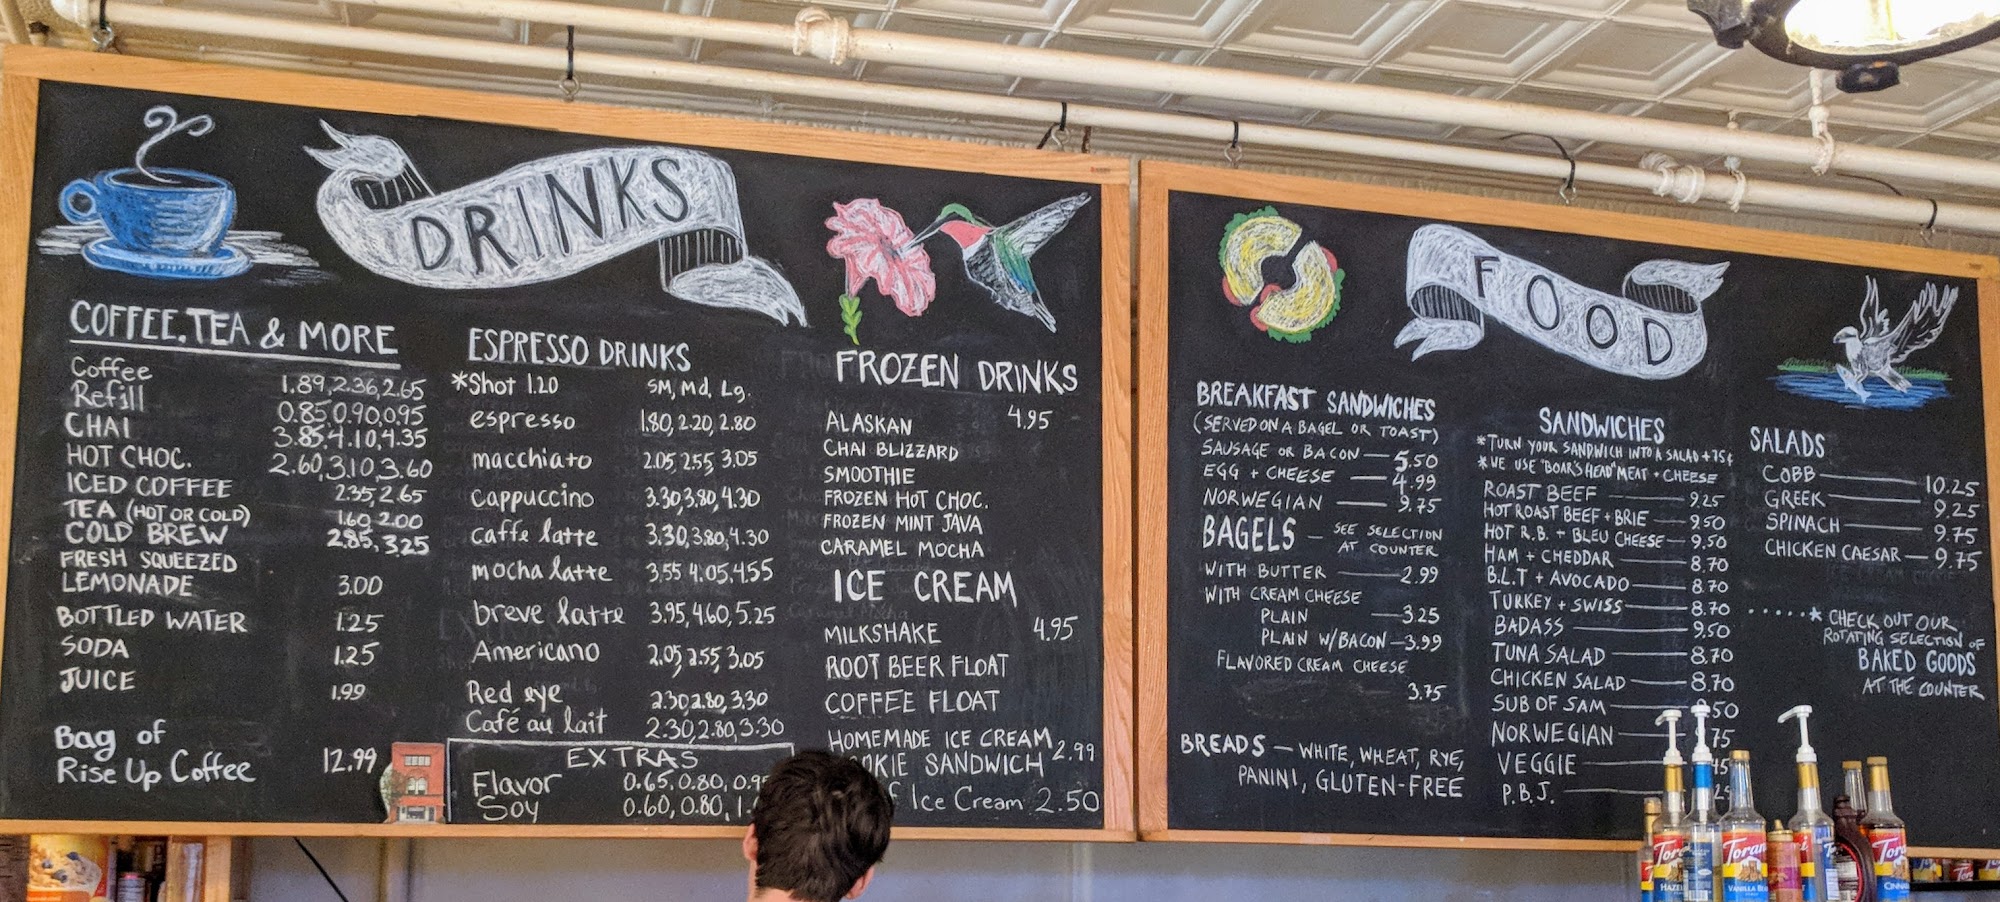 DRINKS
COFFEE, TEA & MORE
Coffee 1.89, 2.36, 2.65
Refill 0.85, 0.90, 0.95
CHAI 3.85, 4.10, 4.35
HOT CHOC. 2.60, 3.10, 3.60
ICED COFFEE 2.35, 2.65
TEA (HOT OR COLD) 1.60, 2.00
COLD BREW 2.85, 3.25
FRESH SQUEEZED
LEMONADE 3.00
BOTTLED WATER 1.25
SODA 1.25
JUICE 1.99
Bag of
Rise Up Coffee 12.99
ESPRESSO DRINKS
*Shot 1.20 SM, Md, Lg.
espresso 1.80, 2.20, 2.80
macchiato 2.05, 2.55, 3.05
cappuccino 3.30, 3.80, 4.30
caffe latte 3.30, 3.80, 4.30
mocha latte 3.55 4.05, 4.55
breve latte 3.95, 4.60, 5.25
Americano 2.05, 2.55, 3.05
Red eye 2.30, 2.80, 3.30
Café au lait 2.30, 2.80, 3.30
EXTRAS
Flavor 0.65, 0.80,
Soy 0.60, 0.80,
FROZEN DRINKS
4.95
ALASKAN
CHAI BLIZZARD
SMOOTHIE
FROZEN HOT CHOC.
FROZEN MINT JAVA
CARAMEL MOCHA
ICE CREAM
MILKSHAKE 4.95
ROOT BEER FLOAT
COFFEE FLOAT
HOMEMADE ICE CREAM
SANDWICH 2.99
Ice Cream 2.50
FOOD
BREAKFAST SANDWICHES
(SERVED ON A BAGEL OR TOAST)
SAUSAGE OR BACON — 5.50
EGG + CHEESE — 4.99
NORWEGIAN — 9.75
BAGELS — SEE SELECTION
AT COUNTER
WITH BUTTER — 2.99
WITH CREAM CHEESE
PLAIN — 3.25
PLAIN W/BACON — 3.99
FLAVORED CREAM CHEESE
3.75
BREADS — WHITE, WHEAT, RYE,
PANINI, GLUTEN-FREE
SANDWICHES
*TURN YOUR SANDWICH INTO A SALAD + 75¢
*WE USE "BOAR'S HEAD" MEAT + CHEESE
ROAST BEEF — 9.25
HOT ROAST BEEF + BRIE — 9.50
HOT R.B. + BLEU CHEESE — 9.50
HAM + CHEDDAR — 8.70
B.L.T + AVOCADO — 8.70
TURKEY + SWISS — 8.70
BADASS — 9.50
TUNA SALAD — 8.70
CHICKEN SALAD — 8.70
SUB OF SAM —
NORWEGIAN —
VEGGIE —
P.B.J. —
SALADS
COBB — 10.25
GREEK — 9.25
SPINACH — 9.75
CHICKEN CAESAR — 9.75
.....* CHECK OUT OUR
ROTATING SELECTION OF
BAKED GOODS
AT THE COUNTER
Torani
VANILLA